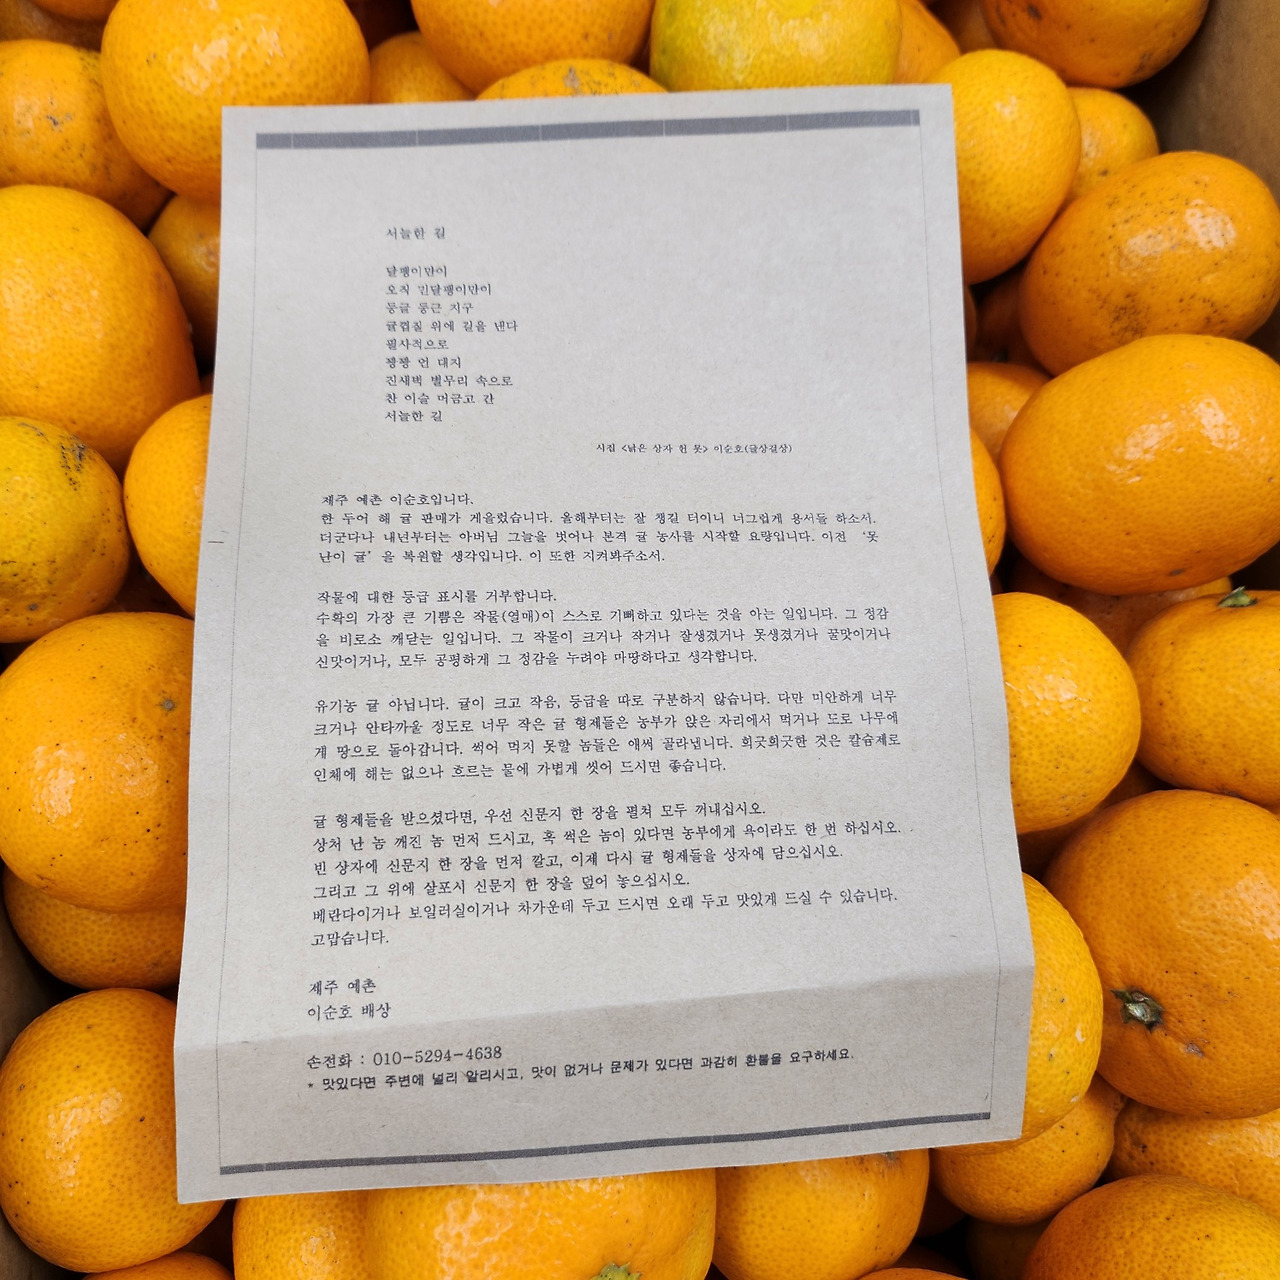 서늘한 길
달팽이만이
오직 민달팽이만이
둥글 둥근 지구
귤껍질 위에 길을 낸다
필사적으로
쨍쨍 언 대지
진새벽 별무리 속으로
찬 이슬 머금고 간
서늘한 길
시집 <낡은 상자 헌 못> 이순호(글상걸상)
제주 예촌 이순호입니다.
한 두어 해 귤 판매가 게을렀습니다. 올해부터는 잘 챙길 터이니 너그럽게 용서들 하소서.
더군다나 내년부터는 아버님 그늘을 벗어나 본격 귤 농사를 시작할 요량입니다. 이전 ‘못
난이 귤’을 복원할 생각입니다. 이 또한 지켜봐주소서.
작물에 대한 등급 표시를 거부합니다.
수확의 가장 큰 기쁨은 작물(열매)이 스스로 기뻐하고 있다는 것을 아는 일입니다. 그 정감
을 비로소 깨닫는 일입니다. 그 작물이 크거나 작거나 잘생겼거나 못생겼거나 꿀맛이거나
신맛이거나, 모두 공평하게 그 정감을 누려야 마땅하다고 생각합니다.
유기농 귤 아닙니다. 귤이 크고 작음, 등급을 따로 구분하지 않습니다. 다만 미안하게 너무
크거나 안타까울 정도로 너무 작은 귤 형제들은 농부가 앉은 자리에서 먹거나 도로 나무에
게 땅으로 돌아갑니다. 썩어 먹지 못할 놈들은 애써 골라냅니다. 희긋희긋한 것은 칼슘제로
인체에 해는 없으나 흐르는 물에 가볍게 씻어 드시면 좋습니다.
귤 형제들을 받으셨다면, 우선 신문지 한 장을 펼쳐 모두 꺼내십시오.
상처 난 놈 깨진 놈 먼저 드시고, 혹 썩은 놈이 있다면 농부에게 욕이라도 한 번 하십시오.
빈 상자에 신문지 한 장을 먼저 깔고, 이제 다시 귤 형제들을 상자에 담으십시오.
그리고 그 위에 살포시 신문지 한 장을 덮어 놓으십시오.
베란다이거나 보일러실이거나 차가운데 두고 드시면 오래 두고 맛있게 드실 수 있습니다.
고맙습니다.
제주 예촌
이순호 배상
손전화 : 010-5294-4638
* 맛있다면 주변에 널리 알리시고, 맛이 없거나 문제가 있다면 과감히 환불을 요구하세요.